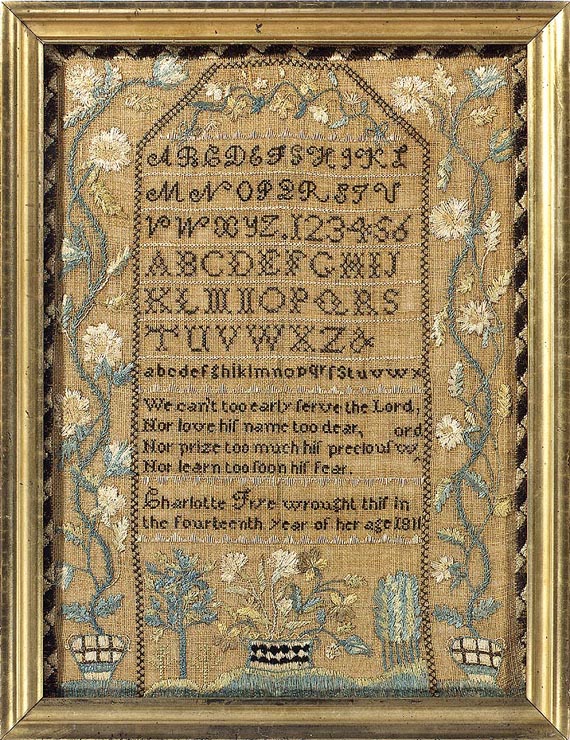 A B C D E F G H I K L
M N O P Q R S T U
V W X Y Z. 1 2 3 4 5 6
A B C D E F G H I J
K L M N O P Q R S
T U V W X Z &
a b c d e f g h i k l m n o p q r ſ s t u v w x
We can't too early ſerve the Lord,
Nor love hiſ name too dear,
Nor prize too much hiſ preciouſ word
Nor learn too ſoon hiſ fear.
Charlotte wrought thiſ in
the fourteenth year of her age 1811